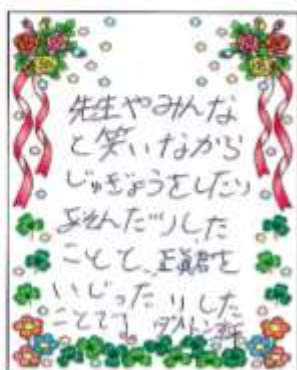 先生やみんな
と笑いながら
じゅぎょうをしたり
あそんだりした
ことて、正眞君を
いじったりした
ことてす ダストン